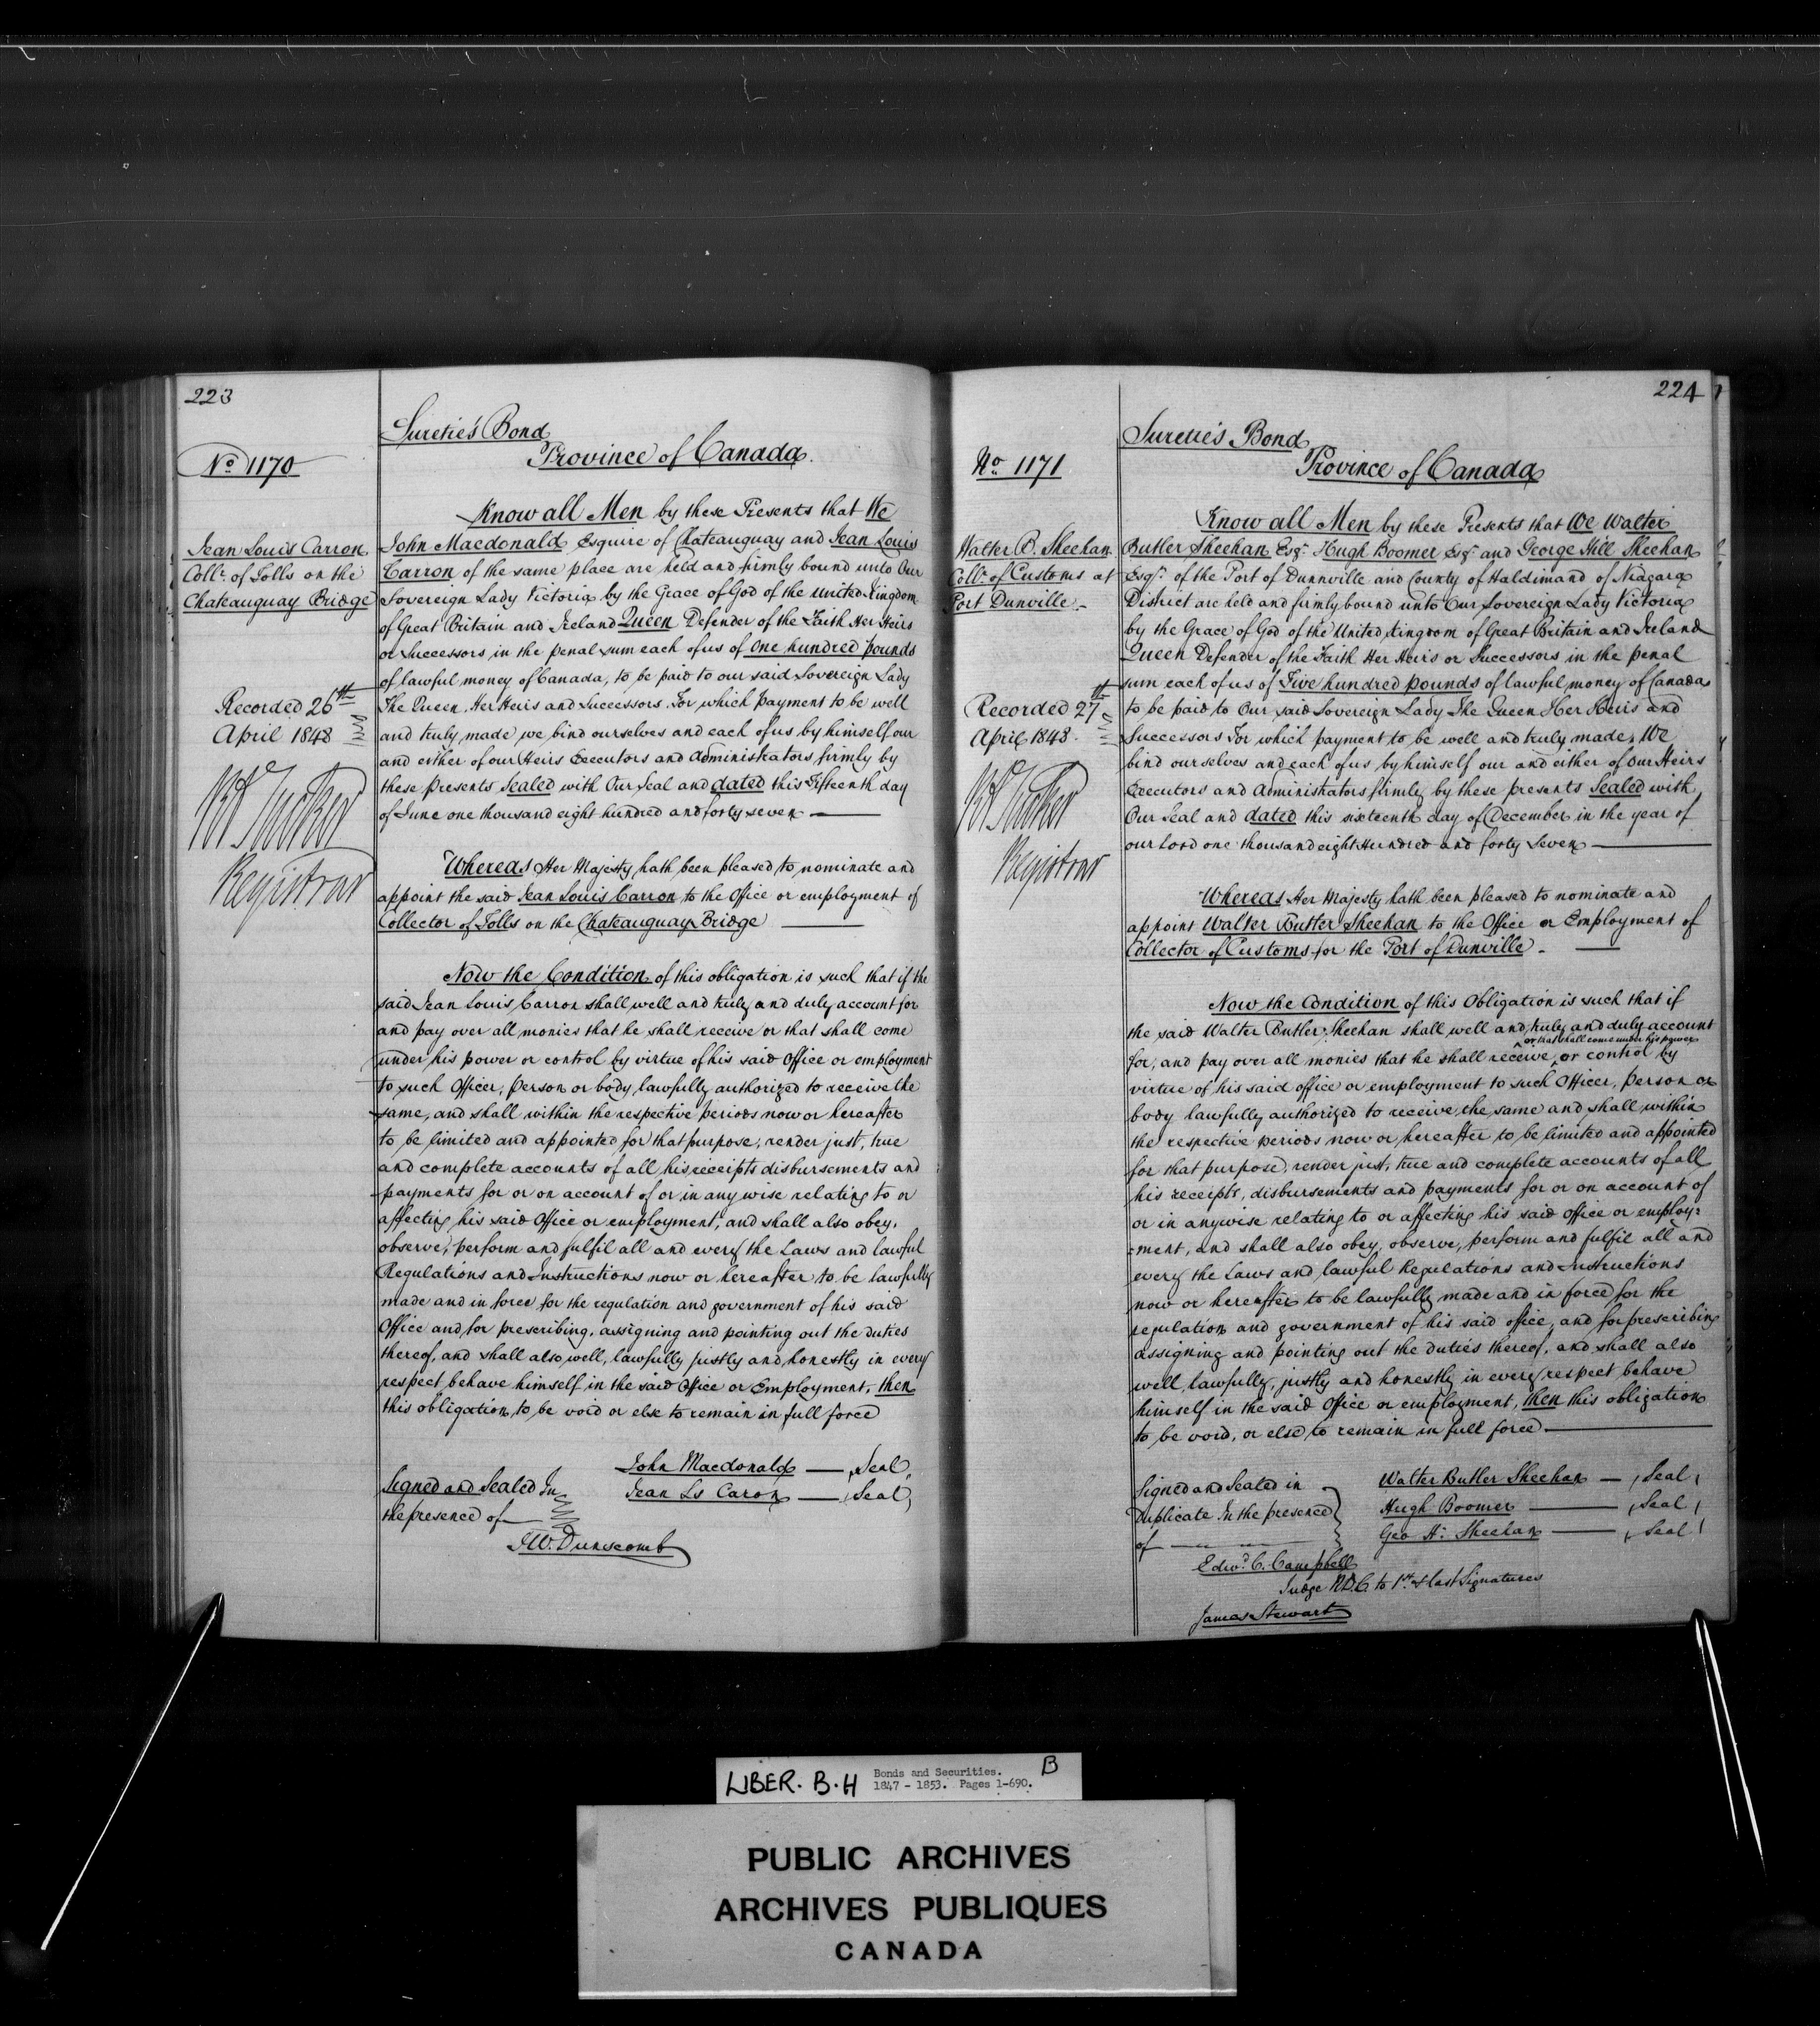 223
Suretie's Bond
Province of Canada.
No 1170
Know all Men by these Presents that We
Jean Louis Carron
Collr. of Tolls on the
Chateauguay Bridge
John Macdonald Esquire of Chateauguay and Jean Louis
Carron of the same place are held and firmly bound unto Our
Sovereign Lady Victoria by the Grace of God of the United Kingdom
of Great Britain and Ireland Queen Defender of the Faith Her Heirs
or Successors in the penal sum each of us of One hundred pounds
of lawful money of Canada, to be paid to our said Sovereign Lady
The Queen, Her Heirs and Successors. For which payment to be well
and truly made we bind ourselves and each of us by himself our
and either of our Heirs Executors and Administrators firmly by
these presents Sealed with Our Seal and dated this Fifteenth day
of June one thousand eight hundred and forty seven
Recorded 26th
April 1848
Registrar
Whereas Her Majesty hath been pleased to nominate and
appoint the said Jean Louis Carron to the Office or employment of
Collector of Tolls on the Chateauguay Bridge
Now the Condition of this obligation is such that if the
said Jean Louis Carron shall well and truly and duly account for
and pay over all monies that he shall receive or that shall come
under his power or control by virtue of his said Office or employment
to such Officer, person or body, lawfully authorized to receive the
same, and shall within the respective periods now or hereafter
to be limited and appointed for that purpose, render just, true
and complete accounts of all his receipts disbursements and
payments for or on account of or in any wise relating to or
affecting his said Office or employment, and shall also obey,
observe, perform and fulfil all and every the Laws and lawful
Regulations and Instructions now or hereafter to be lawfully
made and in force for the regulation and government of his said
Office and for prescribing, assigning and pointing out the duties
thereof, and shall also well, lawfully justly and honestly in every
respect behave himself in the said Office or Employment, then
this obligation to be void or else to remain in full force
John Macdonald — Seal
Jean Ls Caron — Seal
Signed and Sealed In
the presence of
J.W. Dunscomb
224
Suretie's Bond
Province of Canada
No 1171
Know all Men by these Presents that We Walter
Walter B. Sheehan
Collr. of Customs at
Port Dunville -
Butler Sheehan Esqr. Hugh Boomer Esqr. and George Hill Sheehan
Esqr. of the Port of Dunnville and County of Haldimand of Niagara
District are held and firmly bound unto Our Sovereign Lady Victoria
by the Grace of God of the United Kingdom of Great Britain and Ireland
Queen Defender of the Faith Her Heirs or Successors in the penal
sum each of us of Five hundred pounds of lawful money of Canada
to be paid to Our said Sovereign Lady The Queen Her Heirs and
Successors For which payment to be well and truly made, We
bind ourselves and each of us by himself our and either of Our Heirs
Executors and Administrators firmly by these presents Sealed with
Our Seal and dated this sixteenth day of December in the year of
our Lord one thousand eight Hundred and forty Seven
Recorded 27th
April 1848.
Registrar
Whereas Her Majesty hath been pleased to nominate and
appoint Walter Butler Sheehan to the Office or Employment of
Collector of Customs for the Port of Dunville -
Now the Condition of this Obligation is such that if
the said Walter Butler Sheehan shall well and truly and duly account
or that shall come under his power
for, and pay over all monies that he shall receive ^ or control by
virtue of his said office or employment to such Officer, person or
body lawfully authorized to receive the same and shall within
the respective periods now or hereafter to be limited and appointed
for that purpose, render just, true and complete accounts of all
his receipts, disbursements and payments for or on account of
or in anywise relating to or affecting his said office or employ:
:ment, and shall also obey, observe, perform and fulfil all and
every the Laws and lawful Regulations and Instructions
now or hereafter to be lawfully made and in force for the
regulation and government of his said office, and for prescribing
assigning and pointing out the duties thereof, and shall also
well, lawfully, justly and honestly in every respect behave
himself in the said Office or employment, then this obligation
to be void, or else to remain in full force
Signed and Sealed in
Duplicate In the presence
of
Walter Butler Sheehan — Seal
Hugh Boomer — Seal
Geo H: Sheehan — Seal
Edwd. C. Campbell
Judge N.D.C. to 1st. & last Signatures
James Stewart
LIBER. B.H
Bonds and Securities.
1847 - 1853. Pages 1-690.
B
PUBLIC ARCHIVES
ARCHIVES PUBLIQUES
CANADA